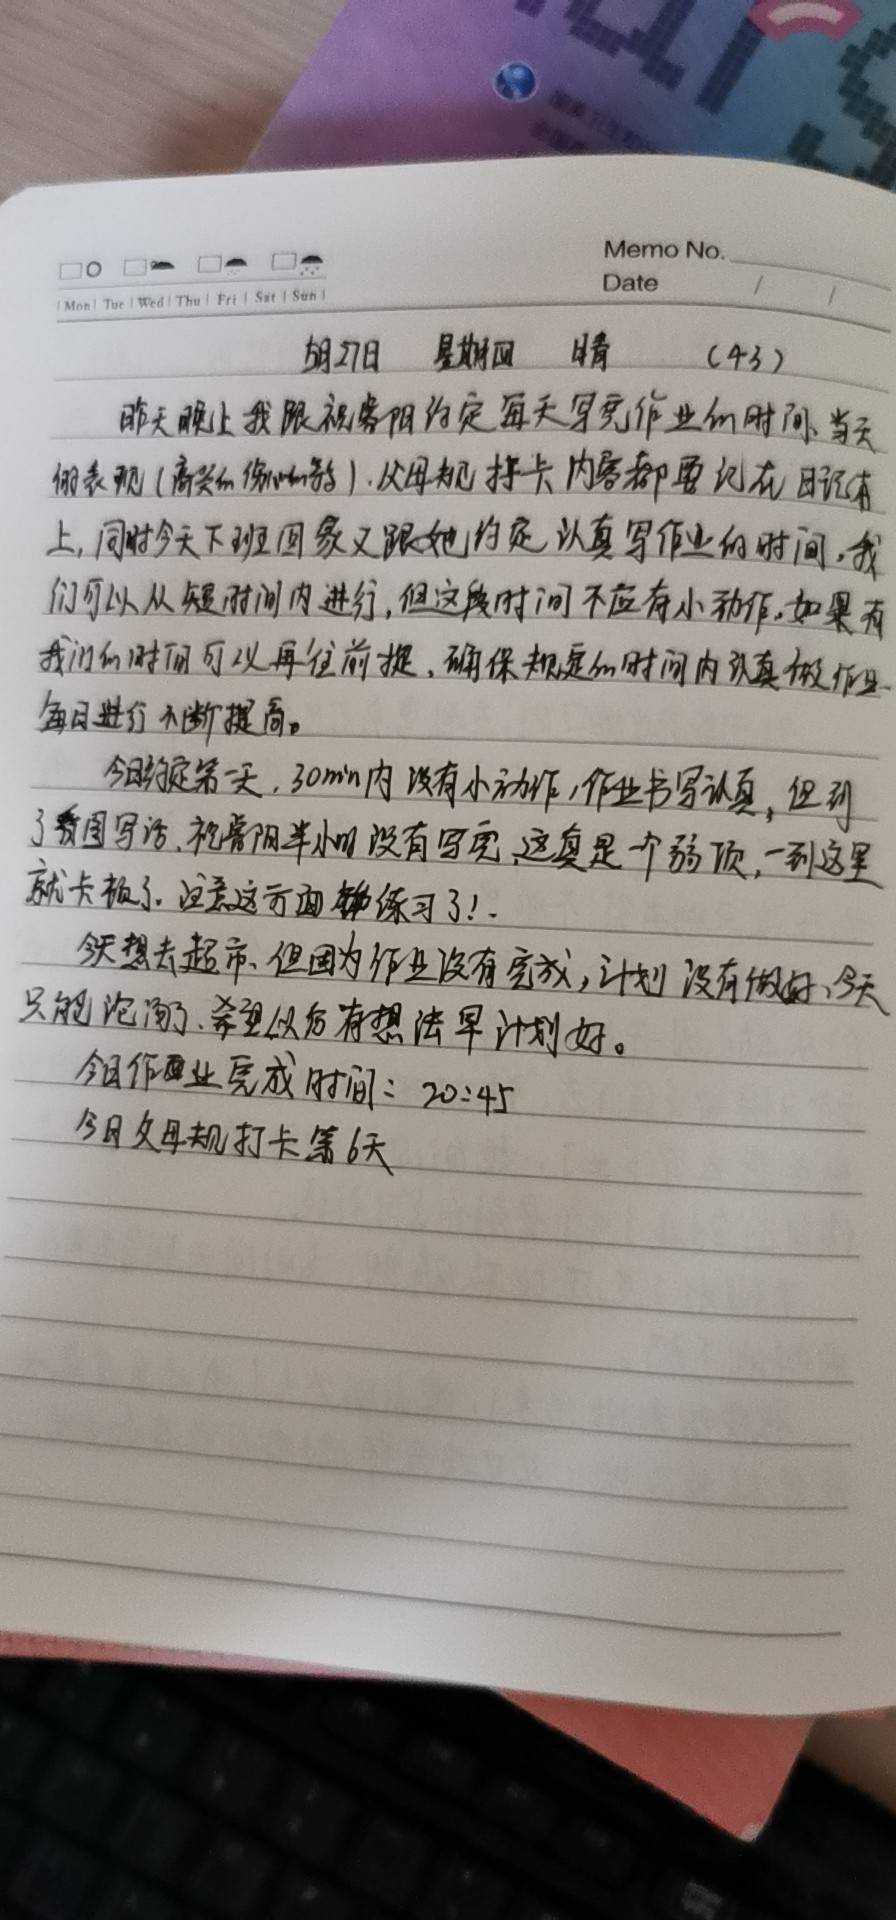 Memo No.
Date / /
Mon Tue Wed Thu Fri Sat Sun
5月27日 星期四 晴 (43)
昨天晚上我跟祝睿阳约定每天写完作业的时间、当天
的表现(高兴的伤心的等)、父母规打卡内容都要记在日记本
上,同时今天下班回家又跟她约定认真写作业的时间,我
们可以从短时间内进行,但这段时间不应有小动作。如果有
我们的时间可以再往前提、确保规定的时间内认真做作业
每日进行不断提高。
今日约定第一天,30min内没有小动作,作业书写认真,但到
了看图写话、祝睿阳半小时没有写完、这真是一个弱项,一到这里
就卡顿了、注意这方面练习了!.
今天想去超市、但因为作业没有完成,计划没有做好、今天
只能泡汤了、希望以后有想法早计划好。
今日作业完成时间:20:45
今日父母规打卡第6天